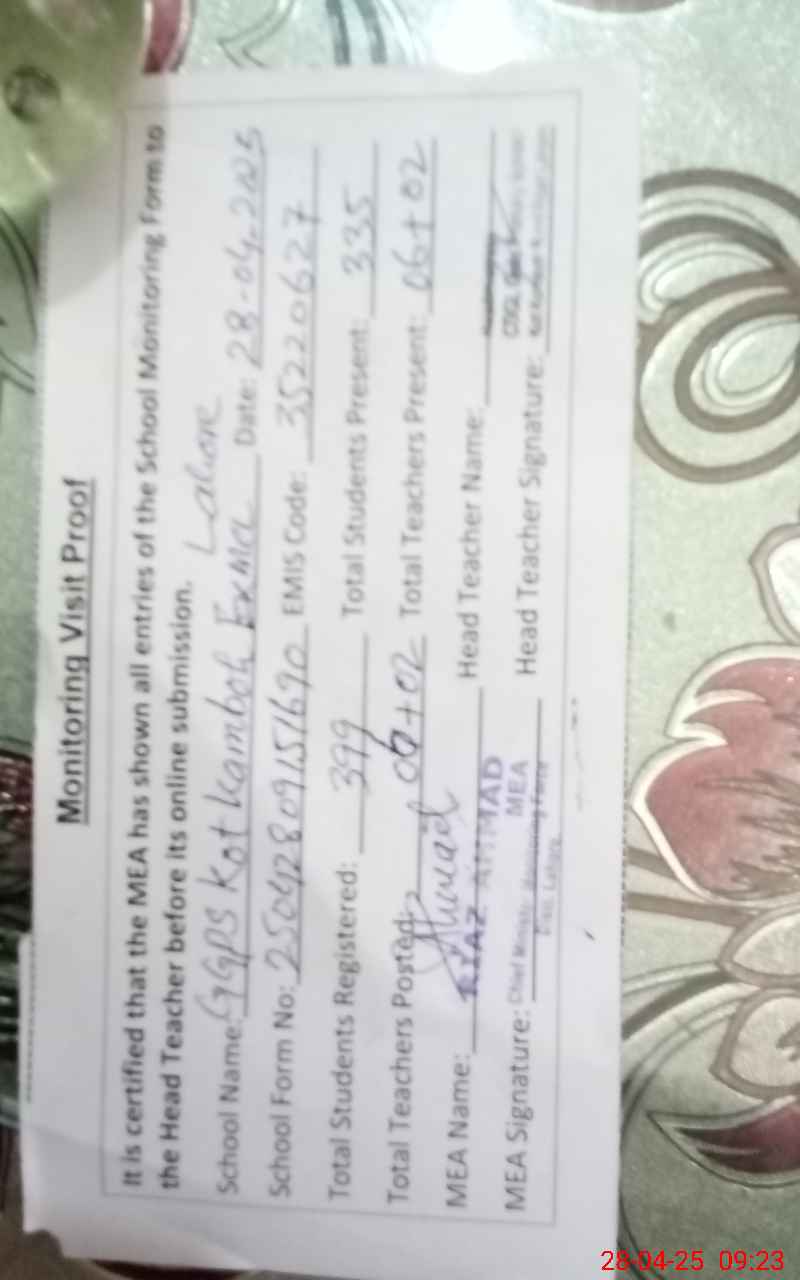 Monitoring Visit Proof
It is certified that the MEA has shown all entries of the School Monitoring Form to
the Head Teacher before its online submission.
Lahore
School Name: GGPS Kot Kamboh Date: 28-04-2025
School Form No: 25042809151690 EMIS Code: 35220627
Total Students Registered: 399 Total Students Present: 335
Total Teachers Posted: 06+02 Total Teachers Present: 06+02
MEA Name: AHMAD Head Teacher Name:
MEA
MEA Signature: Head Teacher Signature:
28-04-25 09:23